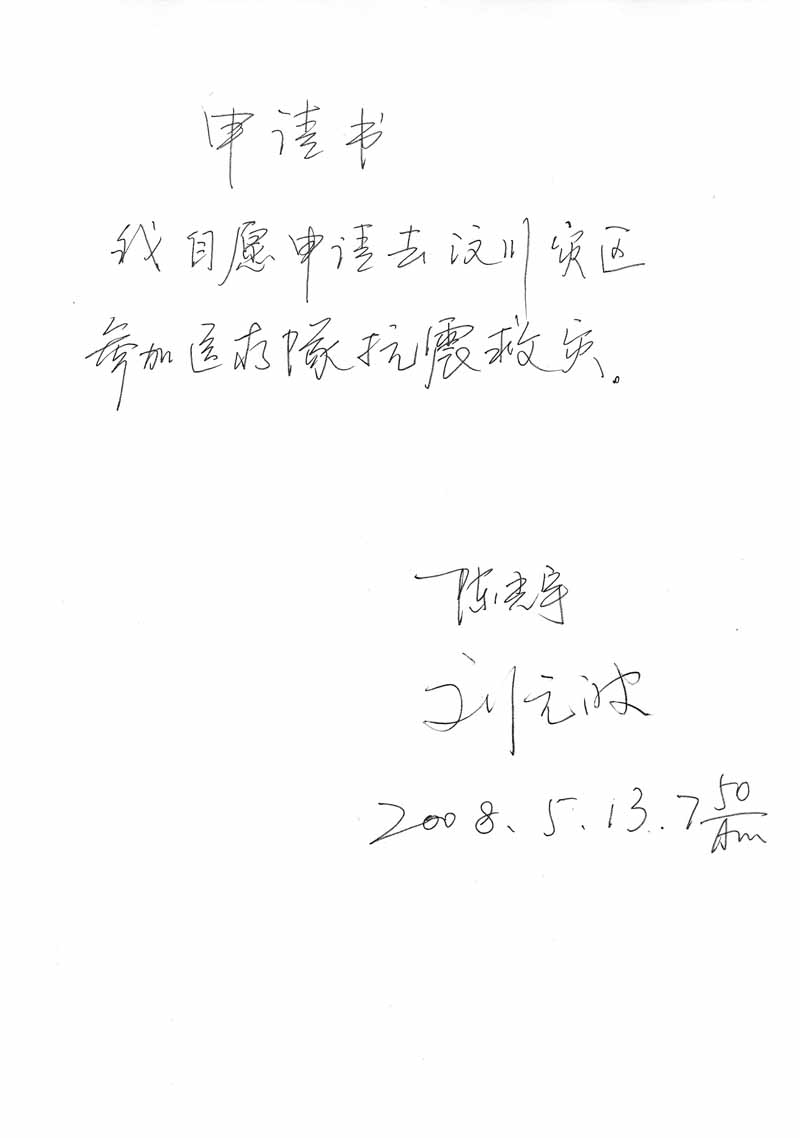 申请书
我自愿申请去汶川灾区
参加医疗隊抗震救灾。
陈志宇
刘元波
2008.5.13.7 50/Am